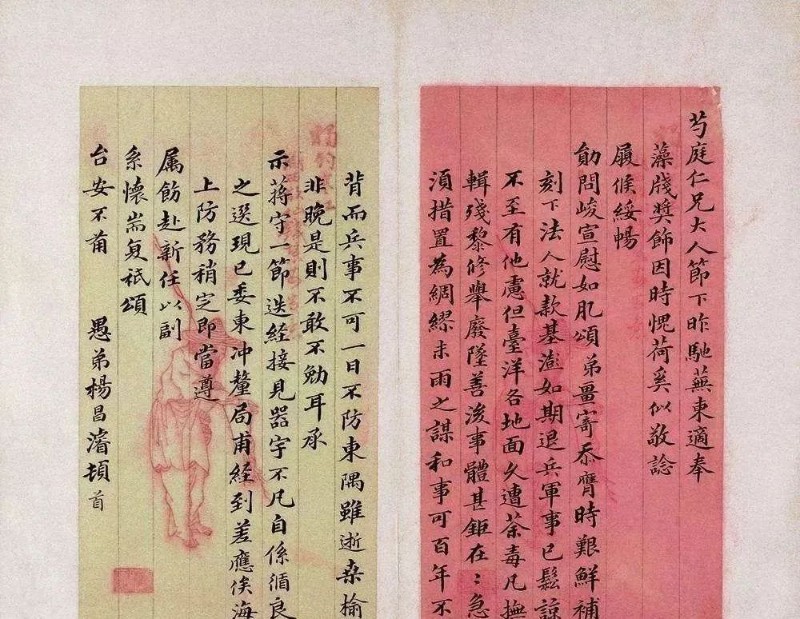 芍庭仁兄大人節下昨馳蕪柬適奉
藻牋獎飾因時愧荷奚似敬諗
履候綏暢
勛問峻宣慰如肊頌弟畺寄忝膺時艱鮮補
刻下法人就款基澎如期退兵軍事已鬆諒
不至有他慮但臺洋各地面久遭荼毒凡撫
輯殘黎修舉廢墜善後事體甚鉅在〻急
須措置為綢繆未雨之謀和事可百年不
背而兵事不可一日不防東隅雖逝桑榆
非晚是則不敢不勉耳承
示蔣守一節迭經接見器宇不凡自係循良
之選現已委東沖釐局甫經到差應俟海
上防務稍定即當遵
属飭赴新任以副
系懷耑复祇頌
台安不莆
愚弟楊昌濬頓首